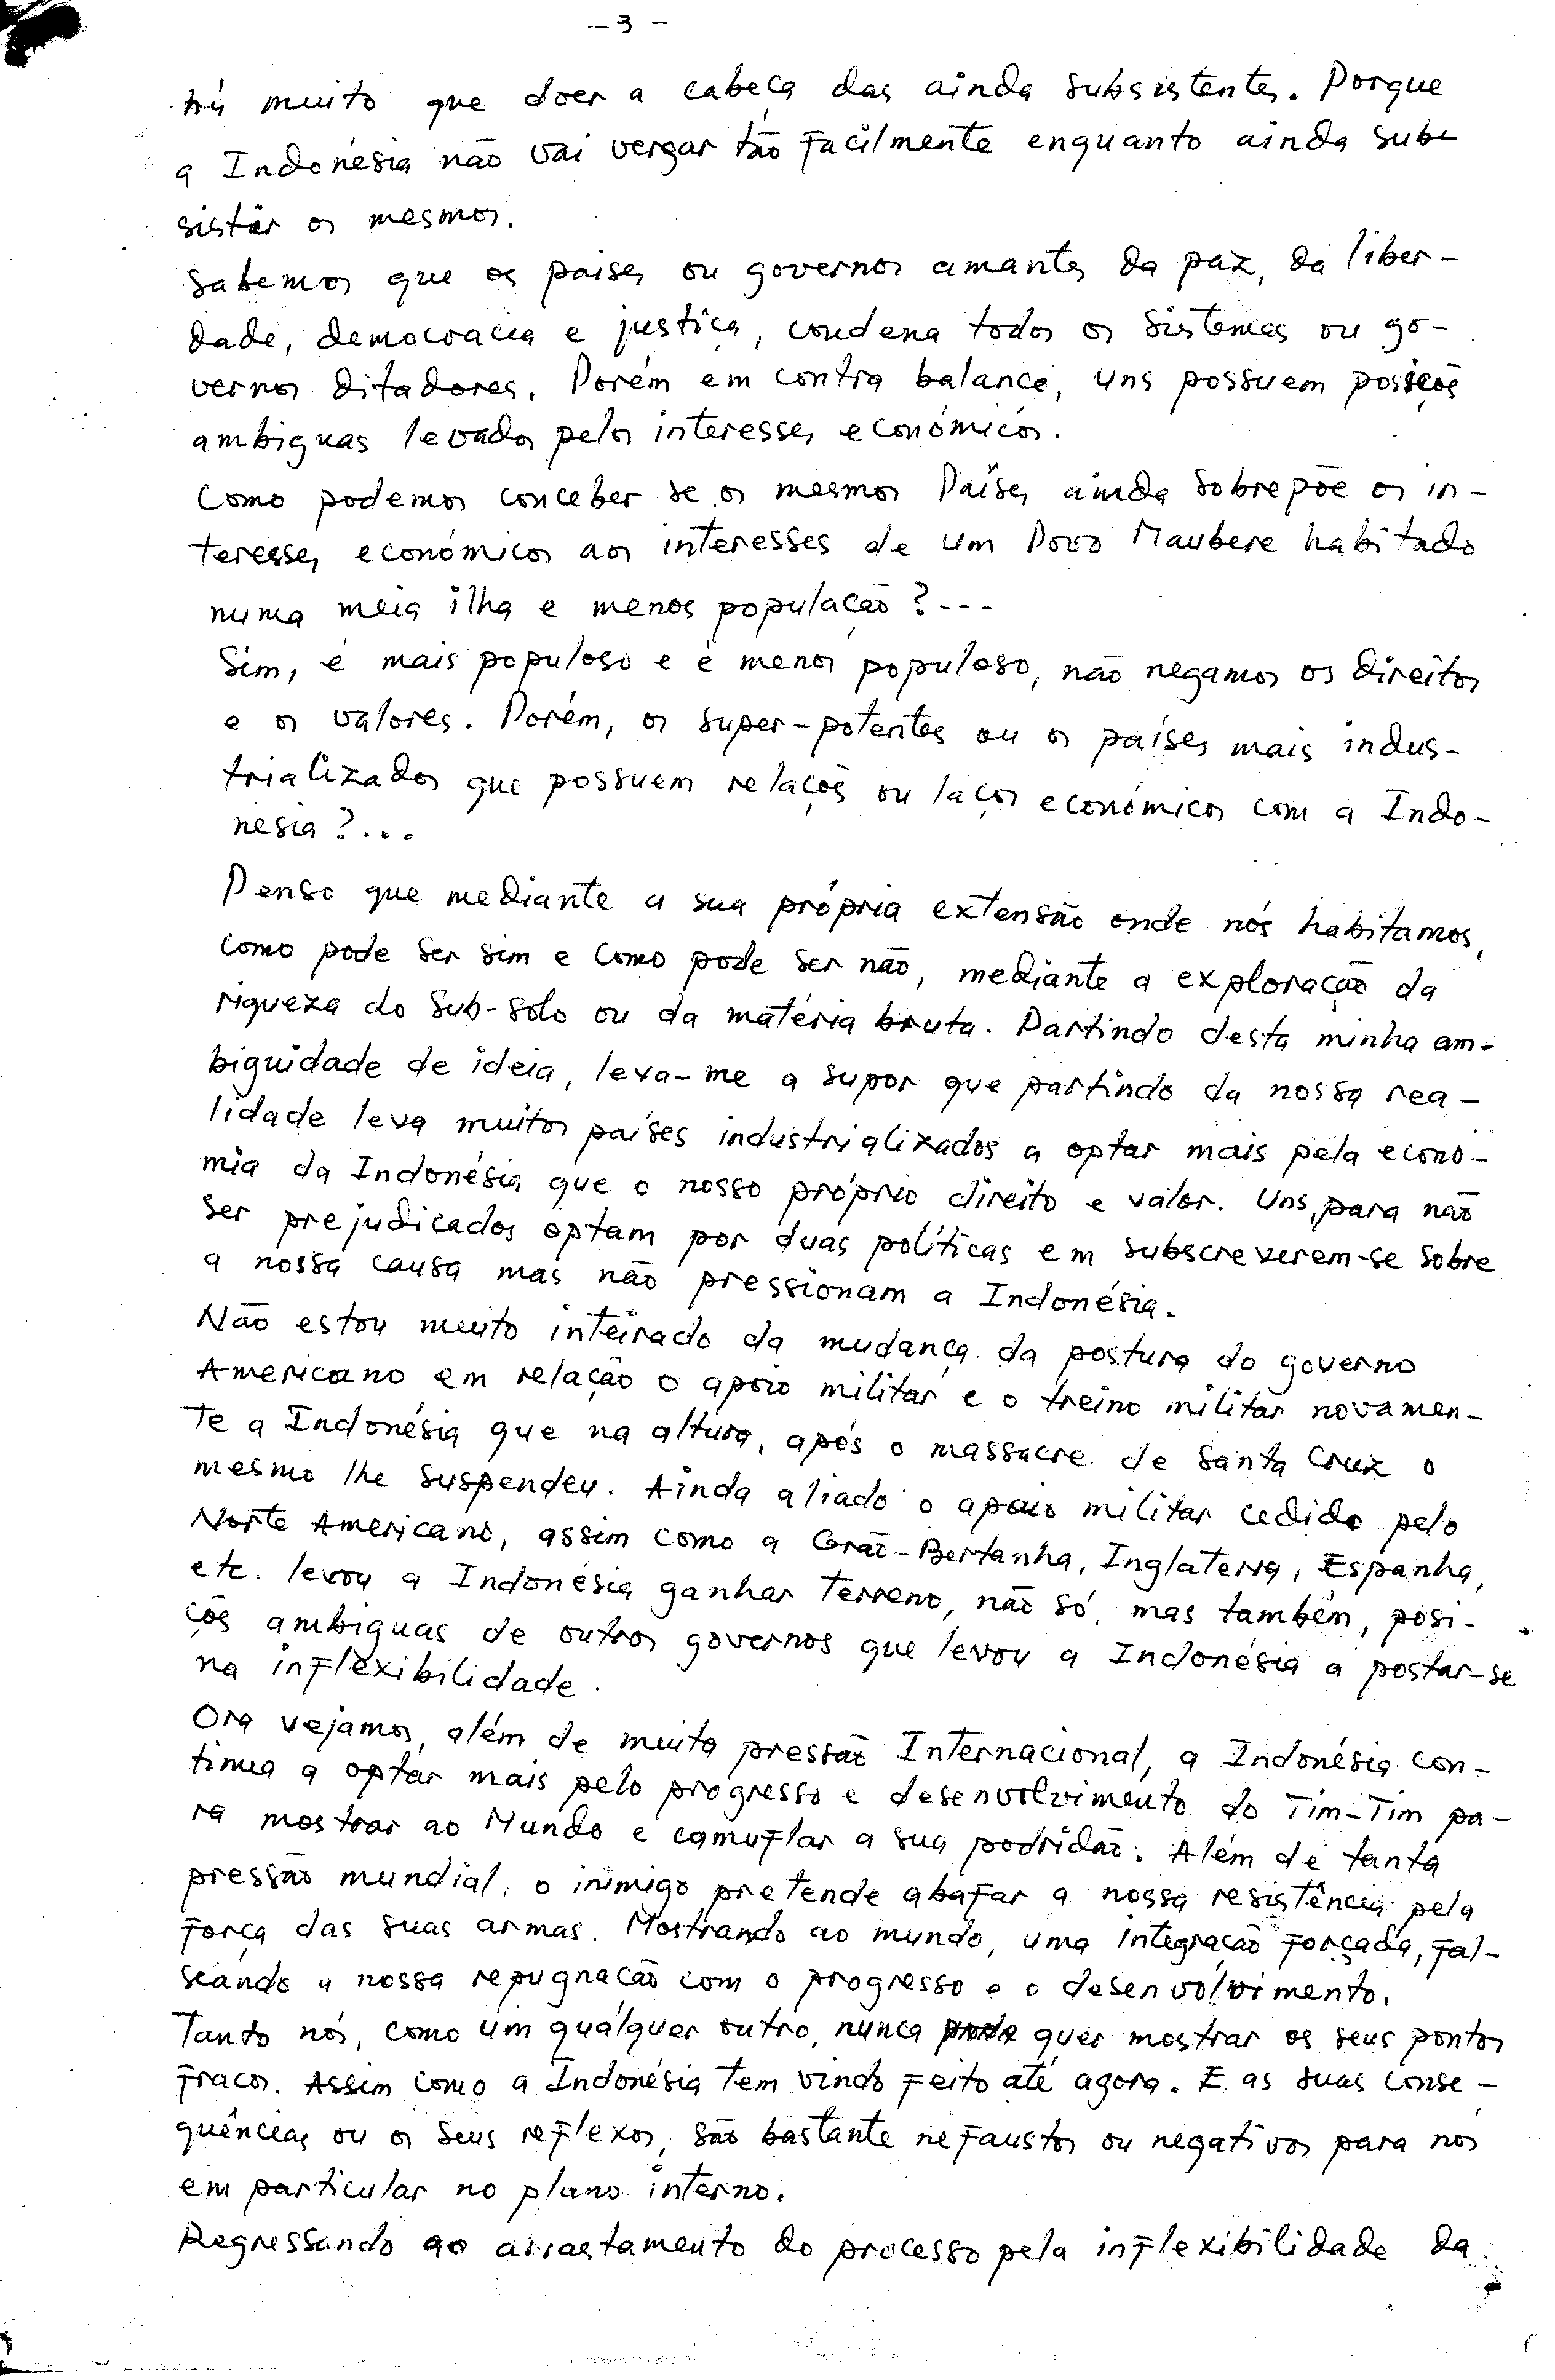 - 3 -
há muito que doer a cabeça das ainda subsistentes. Porque
a Indonésia não vai vergar tão facilmente enquanto ainda sub-
sistir os mesmos.
Sabemos que os paises ou governos amantes da paz, da liber-
dade, democracia e justiça, condena todos os sistemas ou go-
vernos ditadores. Porém em contra balance, uns possuem
ambiguas levados pelos interesses económicos.
Como podemos conceber se os mesmos Países ainda sobrepõe os in-
teresses económicos aos interesses de um Povo Maubere habitado
numa meia ilha e menos população?---
Sim, é mais populoso e é menos populoso, não negamos os direitos
e os valores. Porém, os super-potentes ou os países mais indus-
trializados que possuem relaçõs ou laços económicos com a Indo-
nésia?...
Penso que mediante a sua própria extensão onde nós habitamos,
como pode ser sim e como pode ser não, mediante a exploração da
riqueza do sub-solo ou da matéria bruta. Partindo desta minha am-
biguidade de ideia, leva-me a supor que partindo da nossa rea-
lidade leva muitos países industrializados a optar mais pela econo-
mia da Indonésia que o nosso próprio direito e valor. Uns, para não
ser prejudicados optam por duas políticas em subscreverem-se sobre
a nossa causa mas não pressionam a Indonésia.
Não estou muito inteirado da mudança da postura do governo
Americano em relação o apoio militar e o treino militar novamen-
te a Indonésia que na altura, após o massacre de Santa Cruz o
mesmo lhe suspendeu. Ainda aliado o apoio militar cedido pelo
Norte Americano, assim como a Grã-Bertanha, Inglaterra, Espanha,
etc. levou a Indonésia ganhar terreno, não só, mas também, posi-
çõs ambiguas de outros governos que levou a Indonésia a postar-se
na inflexibilidade.
Ora vejamos, além de muita pressão Internacional, a Indonésia con-
tinua a optar mais pelo progresso e desenvolvimento do Tim-Tim pa-
ra mostrar ao Mundo e camuflar a sua podridão. Além de tanta
pressão mundial, o inimigo pretende abafar a nossa resistência pela
força das suas armas. Mostrando ao mundo, uma integração forçada, fal-
seando a nossa repugnação com o progresso e o desenvolvimento.
Tanto nós, como um quálquer outro, nunca quer mostrar os seus pontos
fracos. Assim como a Indonésia tem vindo feito até agora. E as suas conse-
quências ou os seus reflexos, são bastante nefaustos ou negativos para nós
em particular no plano interno.
Regressando ao arrastamento do processo pela inflexibilidade da